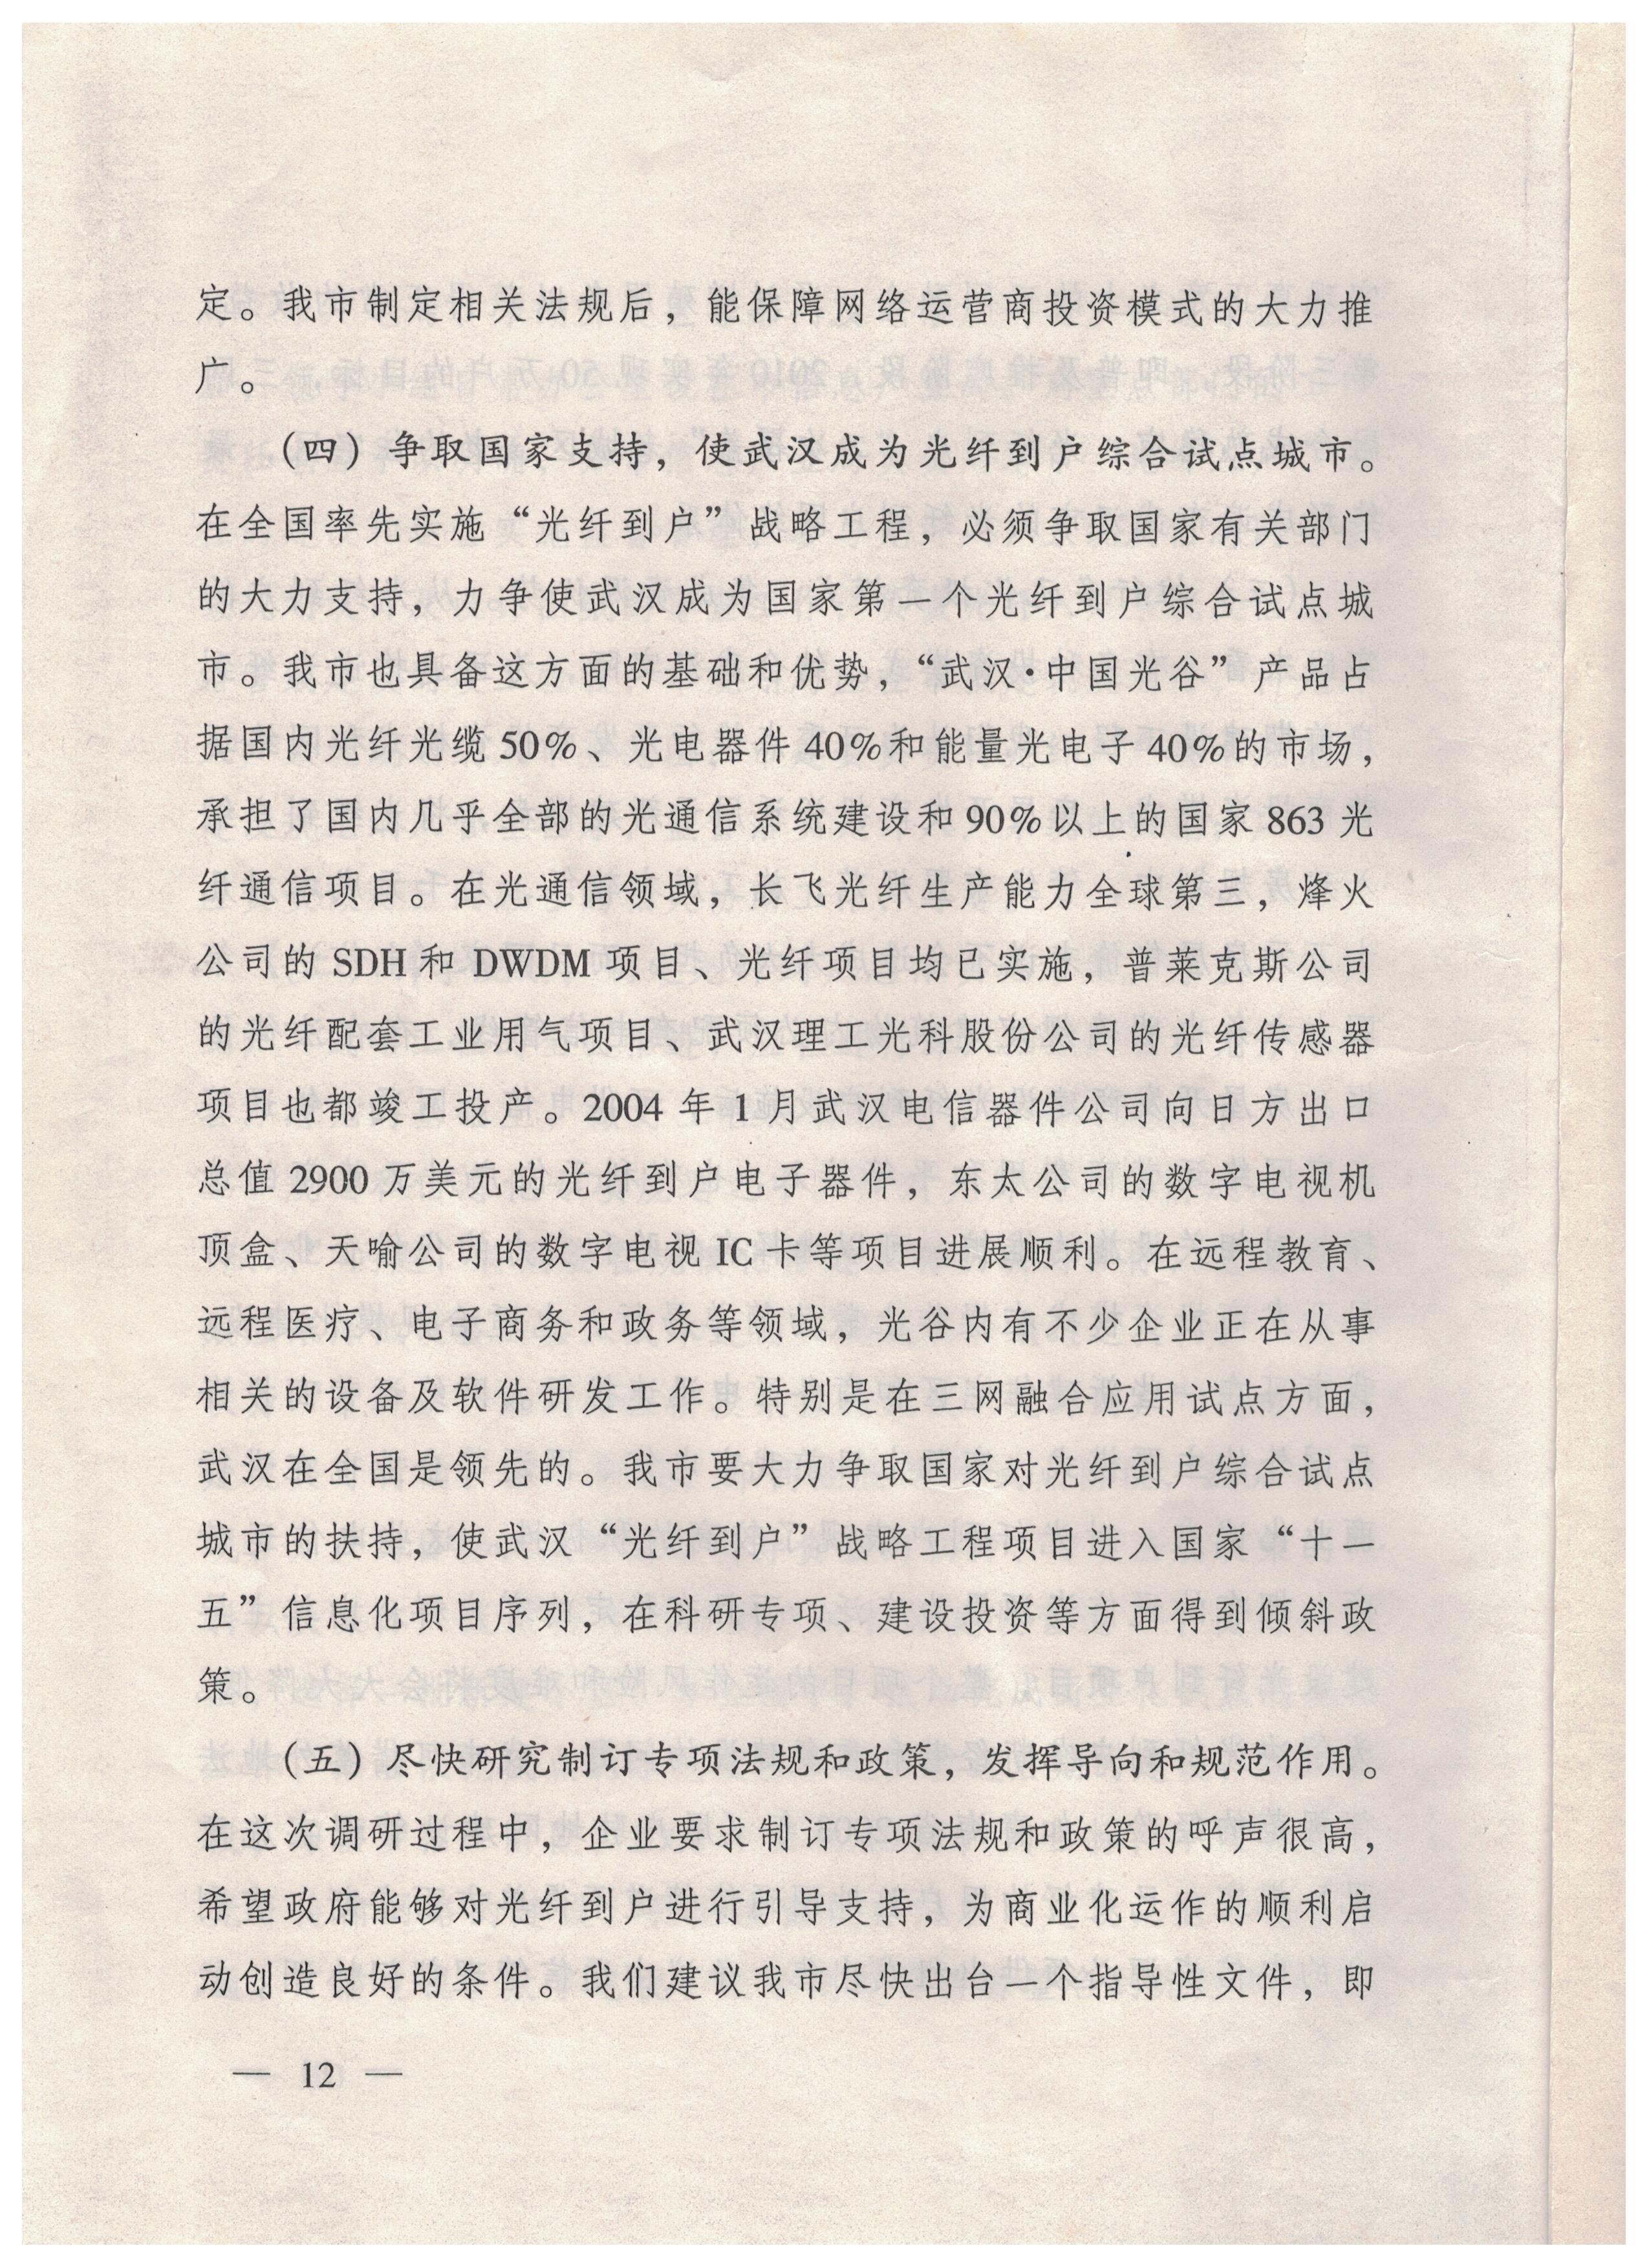 定。我市制定相关法规后，能保障网络运营商投资模式的大力推
广。
（四）争取国家支持，使武汉成为光纤到户综合试点城市。
在全国率先实施“光纤到户”战略工程，必须争取国家有关部门
的大力支持，力争使武汉成为国家第一个光纤到户综合试点城
市。我市也具备这方面的基础和优势，“武汉·中国光谷”产品占
据国内光纤光缆50%、光电器件40%和能量光电子40%的市场，
承担了国内几乎全部的光通信系统建设和90%以上的国家863光
纤通信项目。在光通信领域，长飞光纤生产能力全球第三，烽火
公司的SDH和DWDM项目、光纤项目均已实施，普莱克斯公司
的光纤配套工业用气项目、武汉理工光科股份公司的光纤传感器
项目也都竣工投产。2004年1月武汉电信器件公司向日方出口
总值2900万美元的光纤到户电子器件，东太公司的数字电视机
顶盒、天喻公司的数字电视IC卡等项目进展顺利。在远程教育、
远程医疗、电子商务和政务等领域，光谷内有不少企业正在从事
相关的设备及软件研发工作。特别是在三网融合应用试点方面，
武汉在全国是领先的。我市要大力争取国家对光纤到户综合试点
城市的扶持，使武汉“光纤到户”战略工程项目进入国家“十一
五”信息化项目序列，在科研专项、建设投资等方面得到倾斜政
策。
（五）尽快研究制订专项法规和政策，发挥导向和规范作用。
在这次调研过程中，企业要求制订专项法规和政策的呼声很高，
希望政府能够对光纤到户进行引导支持，为商业化运作的顺利启
动创造良好的条件。我们建议我市尽快出台一个指导性文件，即
— 12 —